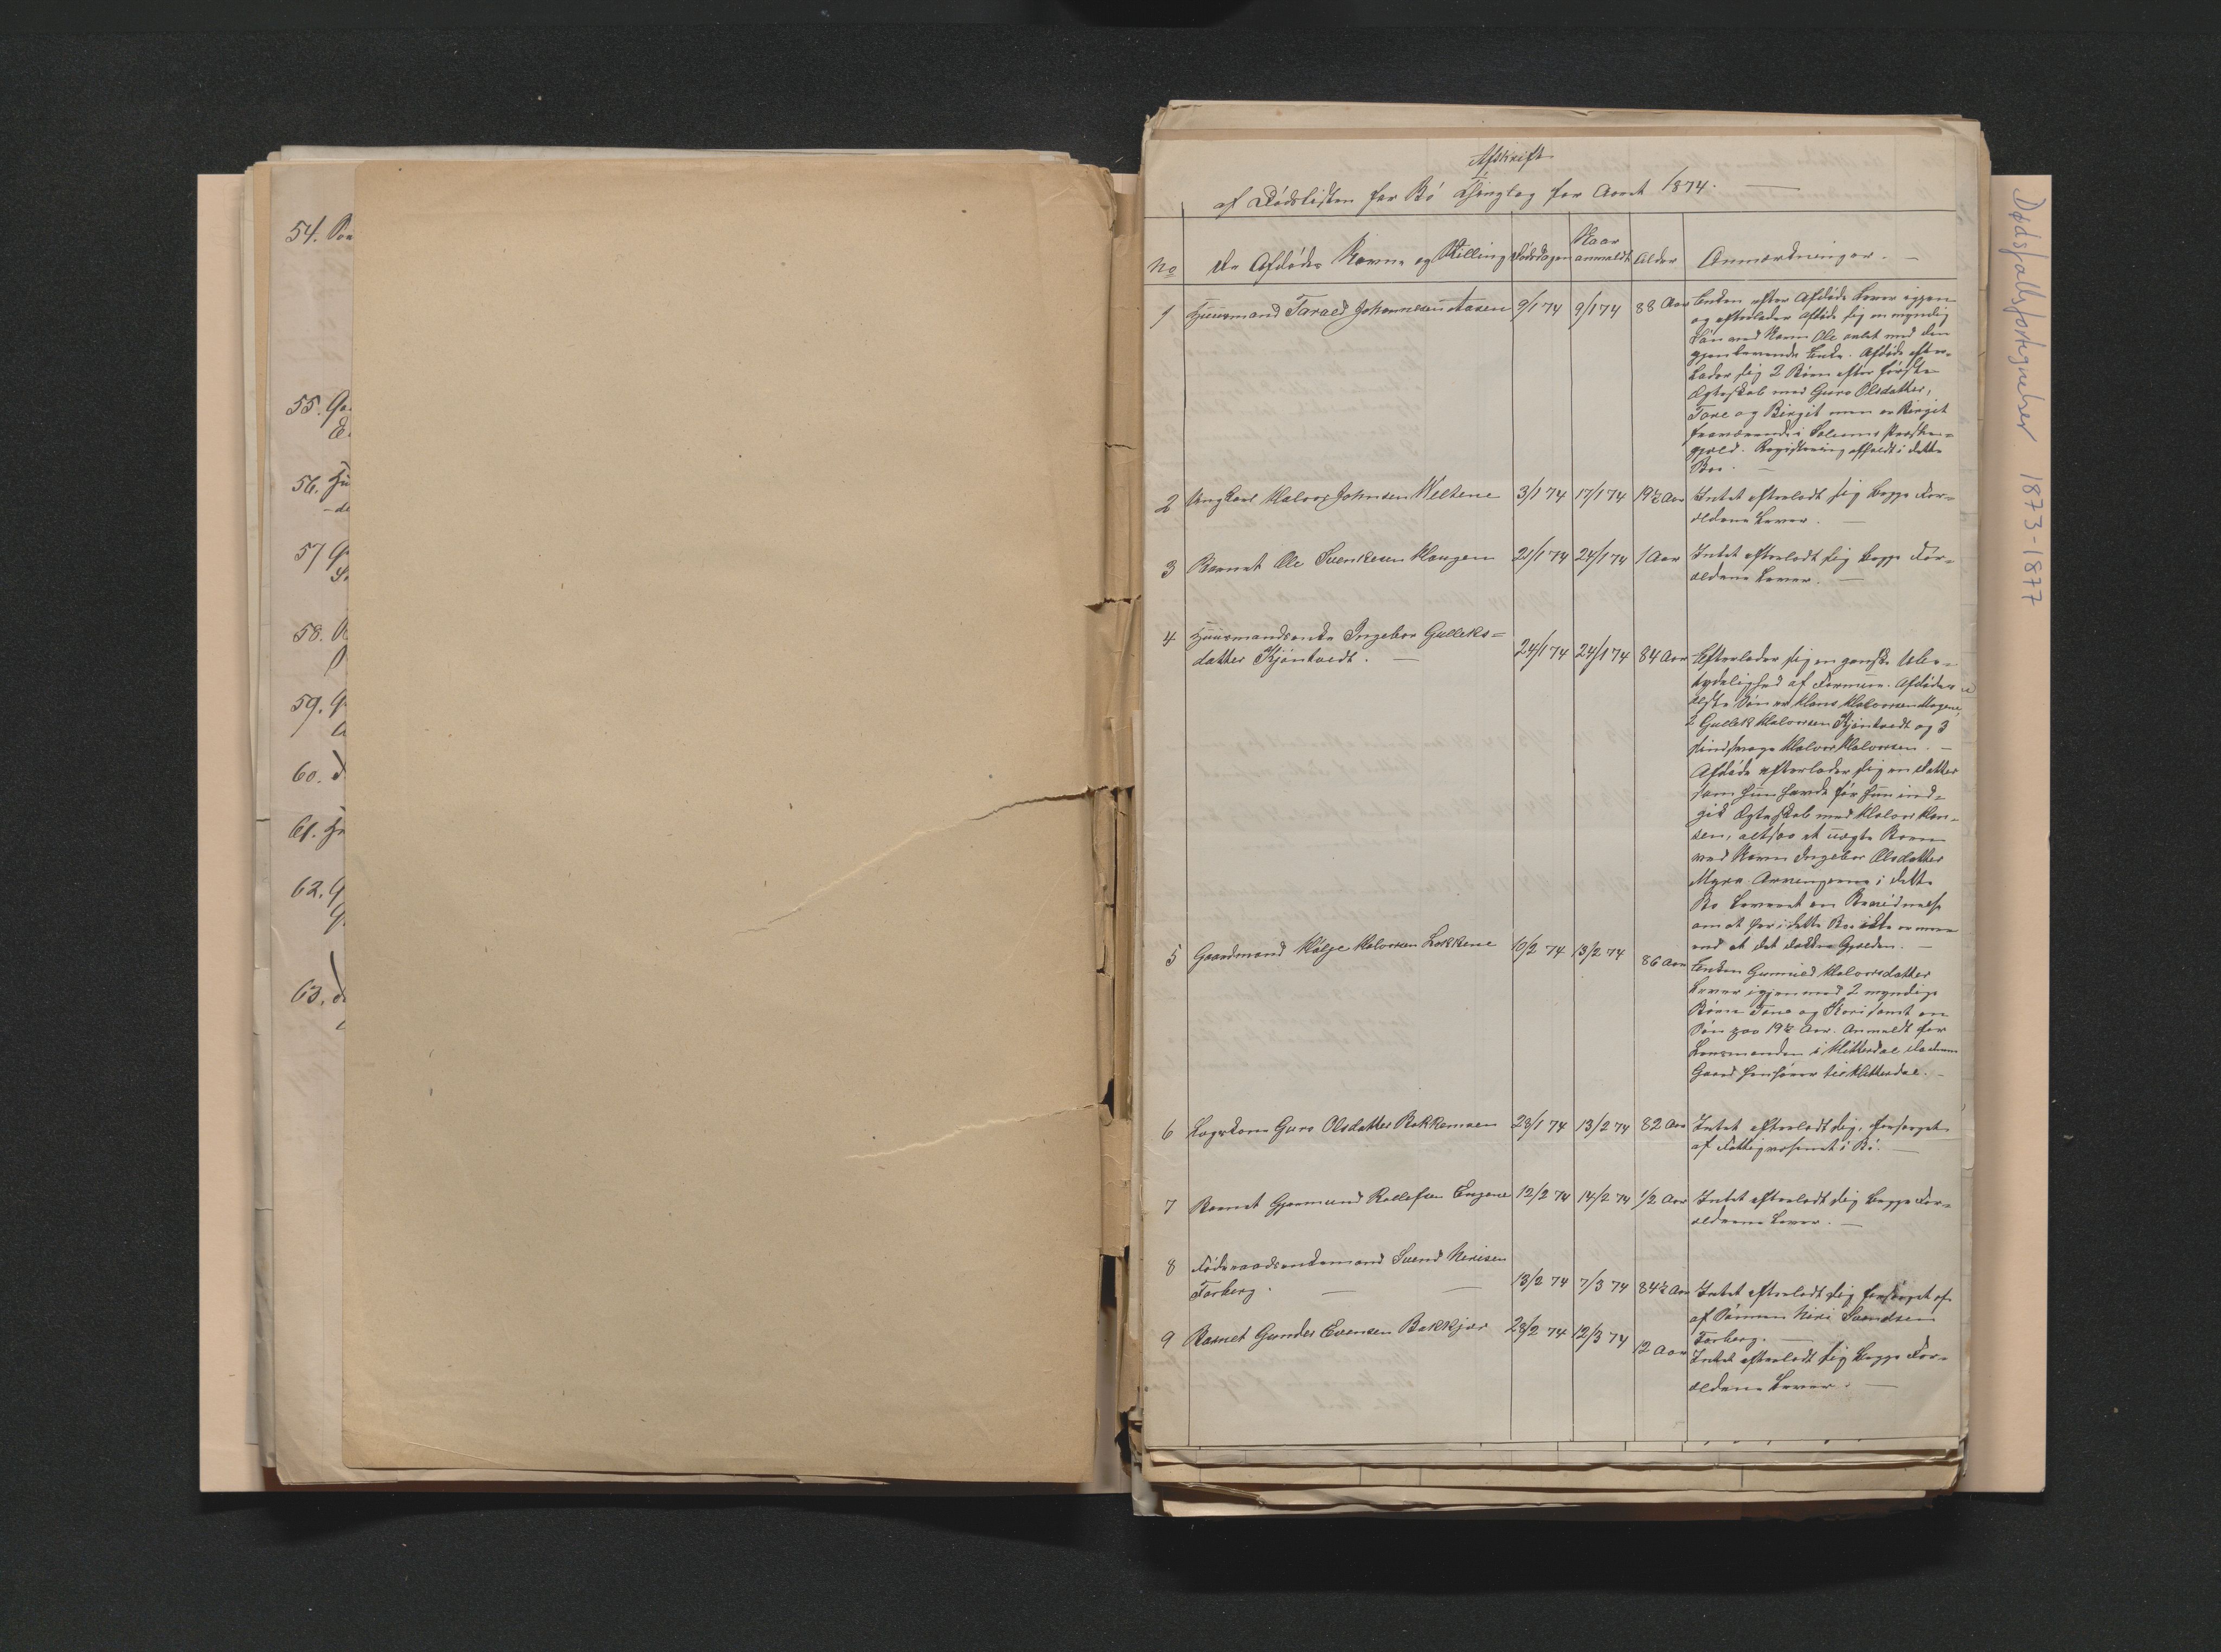 54.
55.
56.
57
58.
59.
60.
61.
62.
63.
Afskrift
af Dødslisten for Bø Thinglag for Aaret 1874.
No
De Afdødes Navne og Stilling
Dødsdagen
Naar
anmeldt
Alder
Anmærkninger.
1 Huusmand Tarald Johannesen Aasen 9/1 74 9/1 74 88 Aar
Enken efter Afdøde Lever igjen
og efterlader Afdøde sig en myndig
Søn ved Navn Ole avlet med den
gjenlevende Enke. Afdøde efter-
lader sig 2 Børn efter første
Ægteskab med Guro Olsdatter,
Tore og Birgit men er Birgit
fraværende i Solums Præste-
gjeld. Registrering afholdt i dette
Bo.
2 Ungkarl Halvor Johnsen Veltene 3/1 74 17/1 74 19½ Aar
Intet efterladt sig begge For-
ældrene Lever.
3 Barnet Ole Svenkesen Haugen 21/1 74 24/1 74 1 Aar
Intet efterladt sig begge For-
ældrene Lever.
4 Huusmandsenke Ingebor Gulleks-
datter Kjöntvedt. 24/1 74 24/1 74 84 Aar
Efterlader sig en ganske Ube-
tydelighed af Formue. Afdødes
ælste Søn er Hans Halvorsen
2 Gullek Halvorsen Kjöntvedt og 3
Halvor Halvorsen.
Afdøde efterlader sig en Datter
som hun havde før hun ind-
gik Ægteskab med Halvor Han-
sen, altsaa et uægte Barn
ved Navn Ingebor Olsdatter
Myra. Arvingerne i dette
Bo
om at her i dette Bo ikke er mere
end at det dækker Gjælden.
5 Gaardmand Helge Halvorsen Løkkene 10/2 74 13/2 74 86 Aar
Enken Gunnild Halvorsdatter
Lever igjen med 2 myndige
Børn Tone og Kari samt en
Søn paa 19½ Aar. Anmeldt for
Lensmanden i Hitterdal da denne
Gaard henhører til Hitterdal.
6 Lægdslem Guro Olsdatter Bakkemoen 23/1 74 13/2 74 82 Aar
Intet efterladt sig, forsørget
af Fattigvæsenet i Bø.
7 Barnet Gjermund Rollefsen Engene 12/2 74 14/2 74 1/2 Aar
Intet efterladt sig begge For-
ældrene Lever.
8 Føderaadsenkemand Svend Nerisen
Forberg. 13/2 74 7/3 74 84½ Aar
Intet efterladt sig forsørget af
af Sønnen Neri Svendsen
Forberg.
9 Barnet Gunder Evensen Bakkjær 23/2 74 12/3 74 12 Aar
Intet efterladt sig begge For-
ældrene Lever.
Dødsfallsfortegnelser 1873-1877